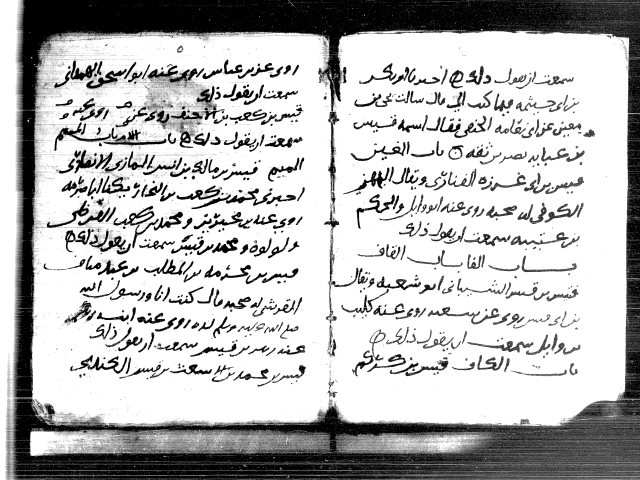 سمعت ابى يقول ذلك اخبرنا ابو بكر
بن ابى خيثمة فيما كتب الى قال سالت يحيى بن
معين عن ابى نعامة الحنفى فقال اسمه قيس
بن عباية بصرى ثقة باب الغين
قيس بن ابى غرزة الغفارى ويقال الجهنى
الكوفى له صحبة روى عنه ابو وايل والحكم
بن عتيبة سمعت ابى يقول ذلك
باب الفا باب القاف
قيس بن قيس الشيبانى ابو شعبة ويقال
بن ابى قيس روى عن سعيد روى عنه كليب
بن وايل سمعت ابى يقول ذلك
باب الكاف قيس بن
روى عن بن عباس روى عنه ابو اسحق الهمدانى
سمعت ابى يقول ذلك
قيس بن كعب بن الاحنف روى عن روى عنه
سمعت ابى يقول ذلك باب اللام باب الميم
الميم قيس بن مالك بن انس المازنى الانصارى
روى عنه بن محيريز ومحمد بن كعب القرظى
ولولوة ومحمد بن قيس سمعت ابى يقول ذلك
قيس بن مخرمة بن المطلب بن عبد مناف
القرشى له صحبة قال كنت انا ورسول الله
صلى الله عليه وسلم لدة روى عنه ابنه
عبد بن قيس سمعت ابى يقول ذلك
قيس بن محمد بن الاشعث بن قيس الكندى